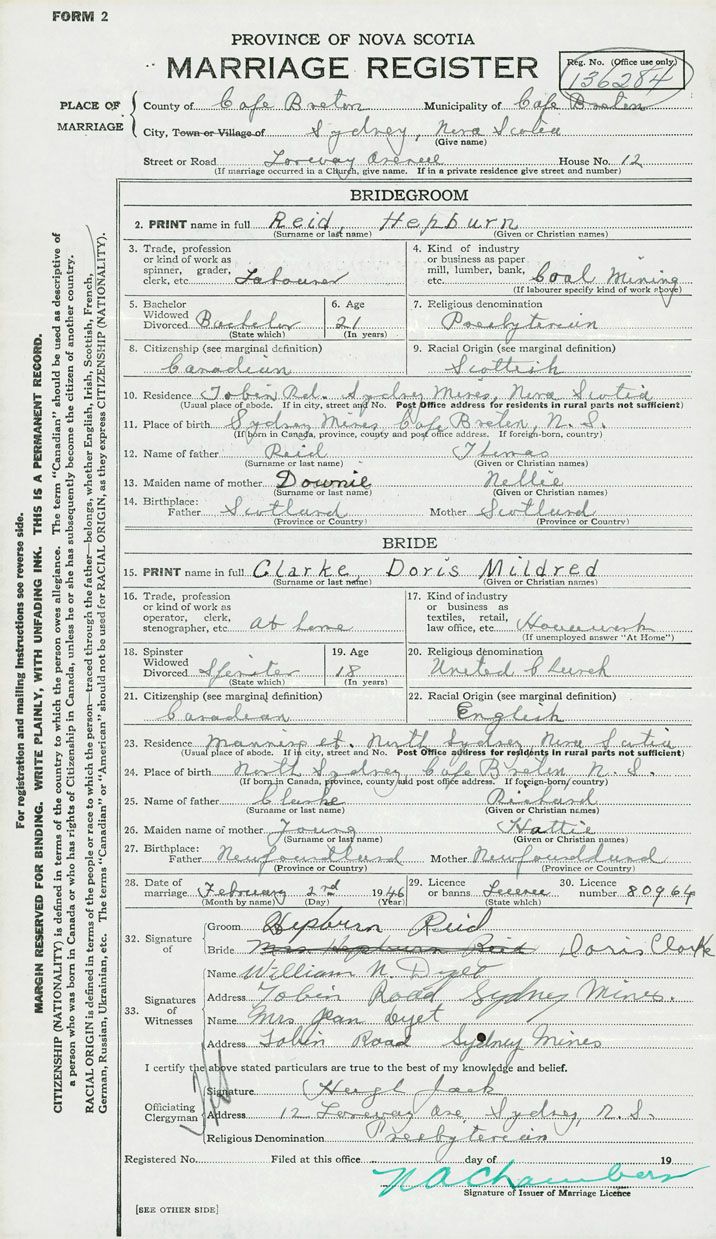 FORM 2
PROVINCE OF NOVA SCOTIA
MARRIAGE REGISTER
Reg. No. (Office use only)
136284
PLACE OF MARRIAGE
County of Cape Breton Municipality of Cape Breton
City, Town or Village of Sydney, Nova Scotia
(Give name)
Street or Road Loreway Avenue House No. 12
(If marriage occurred in a Church, give name. If in a private residence give street and number)
BRIDEGROOM
2. PRINT name in full Reid, Hepburn
(Surname or last name) (Given or Christian names)
3. Trade, profession or kind of work as spinner, grader, clerk, etc. Labourer
4. Kind of industry or business as paper mill, lumber, bank, etc. Coal Mining
(If labourer specify kind of work above)
5. Bachelor Widowed Divorced Bachelor
(State which)
6. Age 21
(In years)
7. Religious denomination
Presbyterian
8. Citizenship (see marginal definition)
Canadian
9. Racial Origin (see marginal definition)
Scottish
10. Residence Tobin Rd. Sydney Mines, Nova Scotia
(Usual place of abode. If in city, street and No. Post Office address for residents in rural parts not sufficient)
11. Place of birth Sydney Mines Cape Breton, N. S.
(If born in Canada, province, county and post office address. If foreign-born, country)
12. Name of father Reid Thomas
(Surname or last name) (Given or Christian names)
13. Maiden name of mother Downie Nellie
(Surname or last name) (Given or Christian names)
14. Birthplace: Father Scotland Mother Scotland
(Province or Country) (Province or Country)
BRIDE
15. PRINT name in full Clarke, Doris Mildred
(Surname or last name) (Given or Christian names)
16. Trade, profession or kind of work as operator, clerk, stenographer, etc. At home
17. Kind of industry or business as textiles, retail, law office, etc. Housework
(If unemployed answer "At Home")
18. Spinster Widowed Divorced Spinster
(State which)
19. Age 18
(In years)
20. Religious denomination
United Church
21. Citizenship (see marginal definition)
Canadian
22. Racial Origin (see marginal definition)
English
23. Residence st. North Sydney Nova Scotia
(Usual place of abode. If in city, street and No. Post Office address for residents in rural parts not sufficient)
24. Place of birth North Sydney Cape Breton N. S.
(If born in Canada, province, county and post office address. If foreign-born, country)
25. Name of father Clarke Richard
(Surname or last name) (Given or Christian names)
26. Maiden name of mother Young Hattie
(Surname or last name) (Given or Christian names)
27. Birthplace: Father Newfoundland Mother Newfoundland
(Province or Country) (Province or Country)
28. Date of marriage February 2nd 1946
(Month by name) (Day) (Year)
29. Licence or banns Licence
(State which)
30. Licence number 80964
32. Signature of
Groom Hepburn Reid
Bride Mrs Hepburn Reid Doris Clarke
33. Signatures of Witnesses
Name William N. Dyet
Address Tobin Road Sydney Mines.
Name Mrs Jean Dyet
Address Tobin Road Sydney Mines
I certify the above stated particulars are true to the best of my knowledge and belief.
Officiating Clergyman
Signature Hugh Jack
Address 12 Loreway Ave, Sydney, N. S.
Religious Denomination Presbyterian
Registered No. Filed at this office day of 19
N A Chambers
Signature of Issuer of Marriage Licence
[SEE OTHER SIDE]
For registration and mailing instructions see reverse side.
MARGIN RESERVED FOR BINDING. WRITE PLAINLY, WITH UNFADING INK. THIS IS A PERMANENT RECORD.
CITIZENSHIP (NATIONALITY) is defined in terms of the country to which the person owes allegiance. The term "Canadian" should be used as descriptive of
a person who was born in Canada or who has rights of Citizenship in Canada, unless he or she has subsequently become the citizen of another country.
RACIAL ORIGIN is defined in terms of the people or race to which the person—traced through the father—belongs, whether English, Irish, Scottish, French,
German, Russian, Ukrainian, etc. The terms "Canadian" or "American" should not be used for RACIAL ORIGIN, as they express CITIZENSHIP (NATIONALITY).